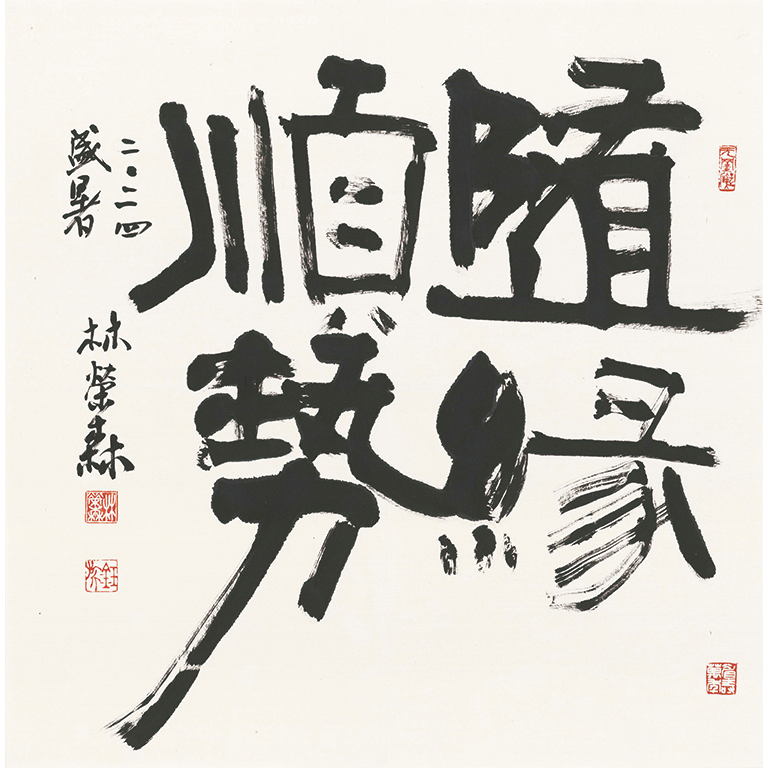 隨緣
順勢
二〇二四
盛暑
林榮森